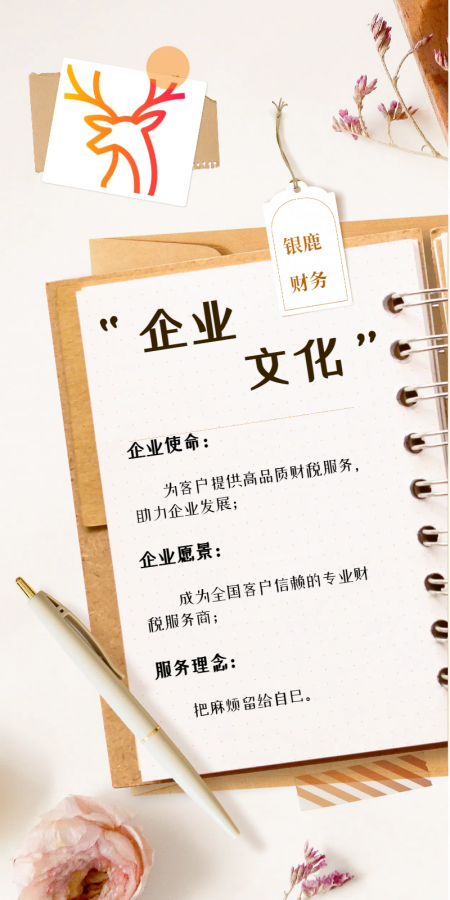 银鹿
财务
“企业
文化”
企业使命：
为客户提供高品质财税服务，
助力企业发展；
企业愿景：
成为全国客户信赖的专业财
税服务商；
服务理念：
把麻烦留给自己。